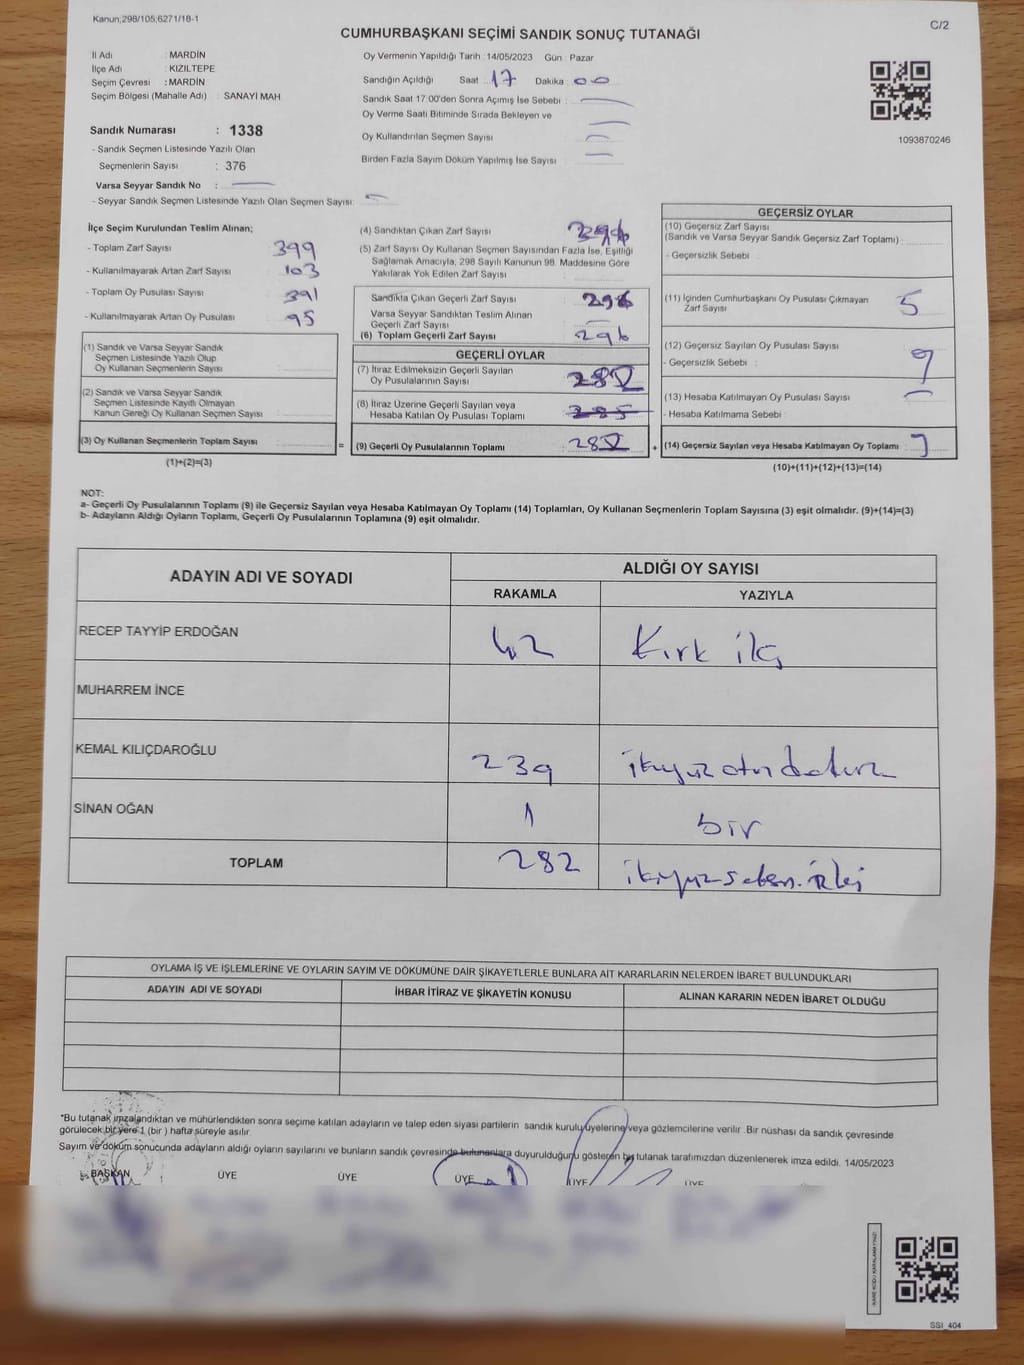 Kanun;298/105;6271/18-1
C/2
CUMHURBAŞKANI SEÇİMİ SANDIK SONUÇ TUTANAĞI
İl Adı : MARDİN
İlçe Adı : KIZILTEPE
Seçim Çevresi : MARDİN
Seçim Bölgesi (Mahalle Adı) : SANAYİ MAH
Sandık Numarası : 1338
- Sandık Seçmen Listesinde Yazılı Olan
Seçmenlerin Sayısı : 376
Varsa Seyyar Sandık No :
- Seyyar Sandık Seçmen Listesinde Yazılı Olan Seçmen Sayısı:
Oy Vermenin Yapıldığı Tarih : 14/05/2023 Gün : Pazar
Sandığın Açıldığı Saat : 17 Dakika : 00
Sandık Saat 17:00'den Sonra Açımış İse Sebebi :
Oy Verme Saati Bitiminde Sırada Bekleyen ve
Oy Kullandırılan Seçmen Sayısı
Birden Fazla Sayım Döküm Yapılmış İse Sayısı
1093870246
İlçe Seçim Kurulundan Teslim Alınan;
- Toplam Zarf Sayısı : 399
- Kullanılmayarak Artan Zarf Sayısı : 103
- Toplam Oy Pusulası Sayısı : 391
- Kullanılmayarak Artan Oy Pusulası : 95
(1) Sandık ve Varsa Seyyar Sandık
Seçmen Listesinde Yazılı Olup
Oy Kullanan Seçmenlerin Sayısı :
(2) Sandık ve Varsa Seyyar Sandık
Seçmen Listesinde Kayıtlı Olmayan
Kanun Gereği Oy Kullanan Seçmen Sayısı :
(3) Oy Kullanan Seçmenlerin Toplam Sayısı :
(1)+(2)=(3)
=
(4) Sandıktan Çıkan Zarf Sayısı : 296
(5) Zarf Sayısı Oy Kullanan Seçmen Sayısından Fazla İse, Eşitliği
Sağlamak Amacıyla, 298 Sayılı Kanunun 98. Maddesine Göre
Yakılarak Yok Edilen Zarf Sayısı :
Sandıkta Çıkan Geçerli Zarf Sayısı : 296
Varsa Seyyar Sandıktan Teslim Alınan
Geçerli Zarf Sayısı :
(6) Toplam Geçerli Zarf Sayısı : 296
GEÇERLİ OYLAR
(7) İtiraz Edilmeksizin Geçerli Sayılan
Oy Pusulalarının Sayısı : 282
(8) İtiraz Üzerine Geçerli Sayılan veya
Hesaba Katılan Oy Pusulası Toplamı : 285
(9) Geçerli Oy Pusulalarının Toplamı : 282
+
GEÇERSİZ OYLAR
(10) Geçersiz Zarf Sayısı
(Sandık ve Varsa Seyyar Sandık Geçersiz Zarf Toplamı) :
- Geçersizlik Sebebi :
(11) İçinden Cumhurbaşkanı Oy Pusulası Çıkmayan
Zarf Sayısı : 5
(12) Geçersiz Sayılan Oy Pusulası Sayısı : 9
- Geçersizlik Sebebi :
(13) Hesaba Katılmayan Oy Pusulası Sayısı :
- Hesaba Katılmama Sebebi :
(14) Geçersiz Sayılan veya Hesaba Katılmayan Oy Toplamı :
(10)+(11)+(12)+(13)=(14)
NOT:
a- Geçerli Oy Pusulalarının Toplamı (9) ile Geçersiz Sayılan veya Hesaba Katılmayan Oy Toplamı (14) Toplamları, Oy Kullanan Seçmenlerin Toplam Sayısına (3) eşit olmalıdır. (9)+(14)=(3)
b- Adayların Aldığı Oyların Toplamı, Geçerli Oy Pusulalarının Toplamına (9) eşit olmalıdır.
ADAYIN ADI VE SOYADI
ALDIĞI OY SAYISI
RAKAMLA YAZIYLA
RECEP TAYYİP ERDOĞAN 42 Kırk iki
MUHARREM İNCE
KEMAL KILIÇDAROĞLU 239 ikiyüz otuz dokuz
SİNAN OĞAN 1 bir
TOPLAM 282 ikiyüzseksen iki
OYLAMA İŞ VE İŞLEMLERİNE VE OYLARIN SAYIM VE DÖKÜMÜNE DAİR ŞİKAYETLERLE BUNLARA AİT KARARLARIN NELERDEN İBARET BULUNDUKLARI
ADAYIN ADI VE SOYADI İHBAR İTİRAZ VE ŞİKAYETİN KONUSU ALINAN KARARIN NEDEN İBARET OLDUĞU
*Bu tutanak imzalandıktan ve mühürlendikten sonra seçime katılan adayların ve talep eden siyasi partilerin sandık kurulu üyelerine veya gözlemcilerine verilir .Bir nüshası da sandık çevresinde
görülecek bir yere 1 (bir ) hafta süreyle asılır.
Sayım ve döküm sonucunda adayların aldığı oyların sayılarını ve bunların sandık çevresinde bulunanlara duyurulduğunu gösteren bu tutanak tarafımızdan düzenlenerek imza edildi. 14/05/2023
BAŞKAN ÜYE ÜYE ÜYE ÜYE ÜYE
SSI_404